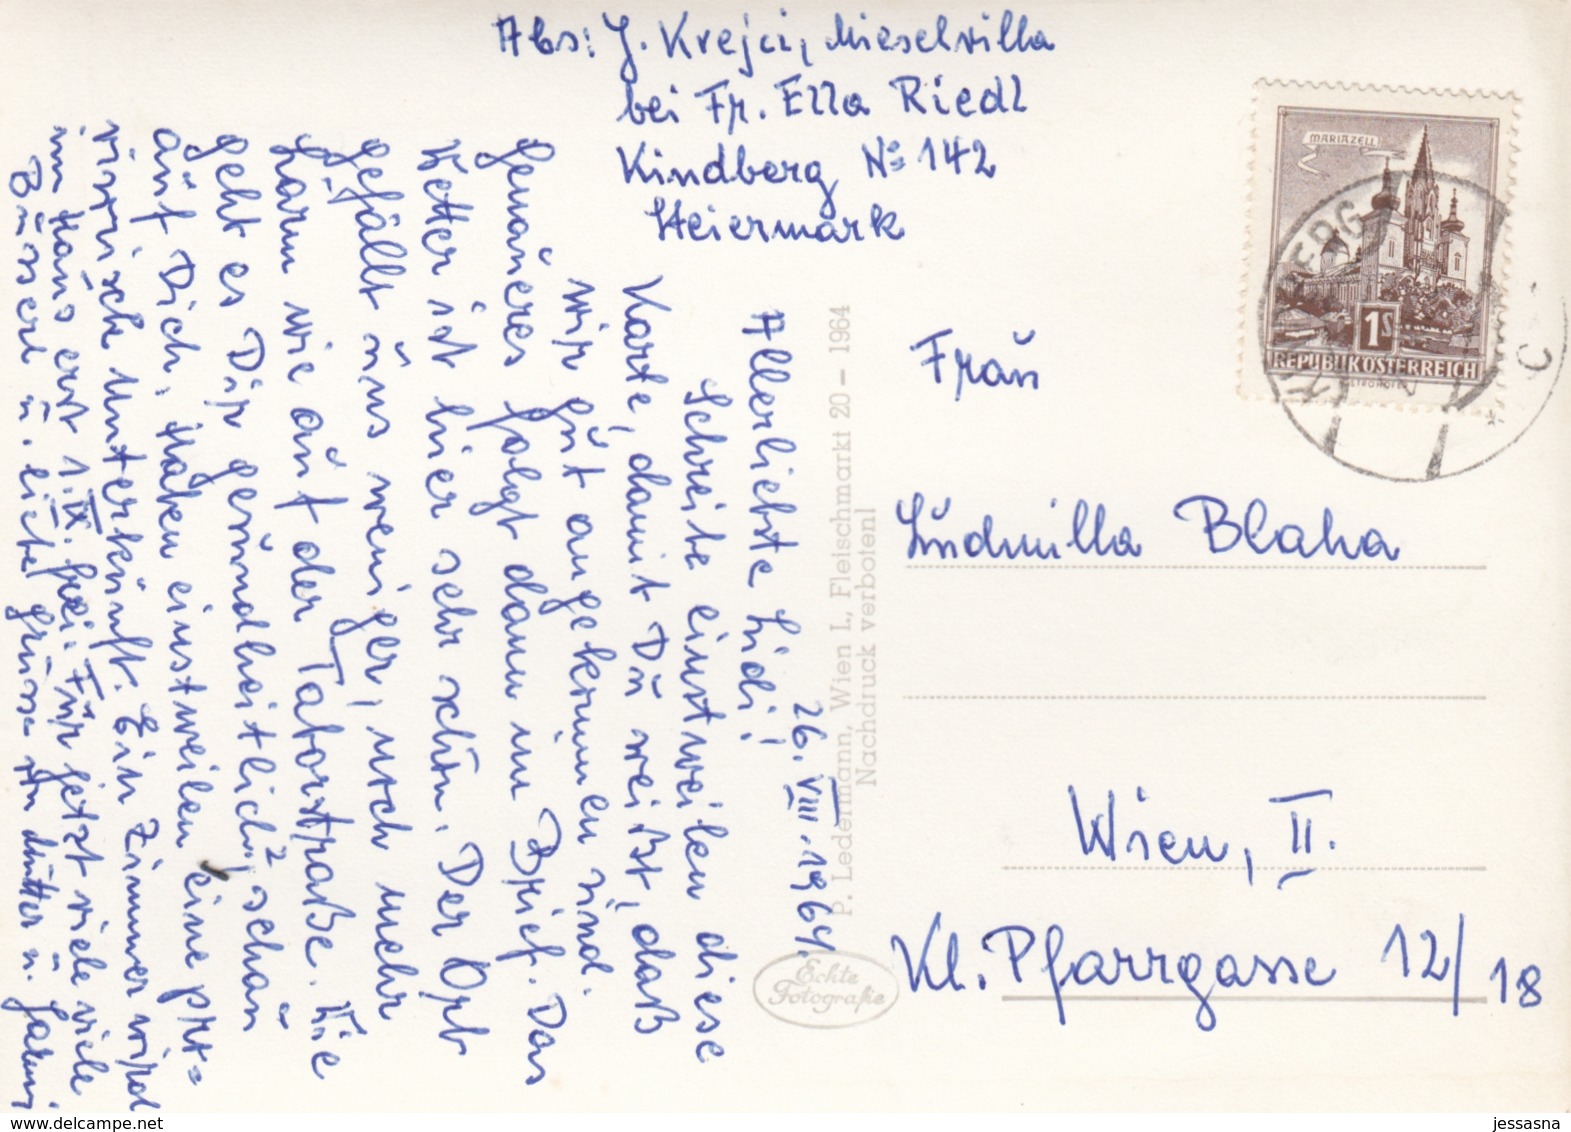 Abs: J. Krejci, Mieselvilla
bei Fr. Ella Riedl
Kindberg No 142
Steiermark
MARIAZELL
1S
REPUBLIK ÖSTERREICH
KINDBERG
Frau
Ludmilla Blaha
Wien, II.
Kl. Pfarrgasse 12/18
P. Ledermann, Wien I., Fleischmarkt 20 – 1964
Nachdruck verboten!
Echte
Fotografie
26. VIII. 1964.
Allerliebste Lidi!
Schreibe einstweilen diese
Karte, damit Du weißt, daß
wir gut angekommen sind.
Genaueres folgt dann im Brief. Das
Wetter ist hier sehr schön. Der Ort
gefällt uns weniger, noch mehr
Lärm wie auf der Taborstraße. Wie
geht es Dir gesundheitlich? schau
auf Dich. Haben einstweilen eine pro=
visorische Unterkunft. Ein Zimmer wird
im Haus erst 1. IX. frei. Für jetzt viele viele
Busserl u. liebe Grüße Mutter u.